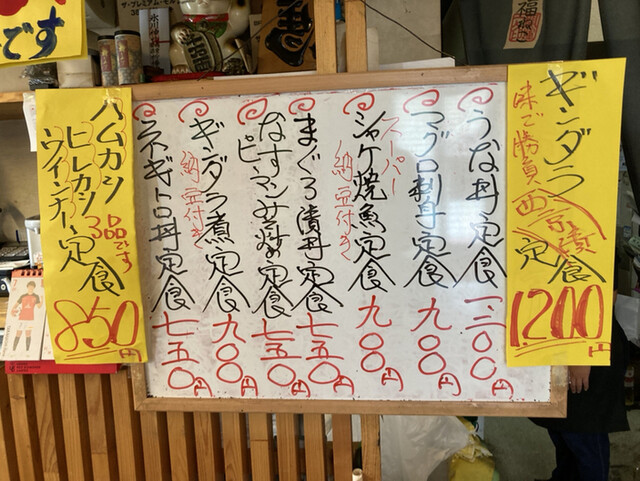 です
福
ギンダラ
味で勝負
西京漬
定食
1,200円
うな丼定食
一三〇〇円
マグロ刺身定食
九〇〇円
スーパー
シャケ焼魚定食
納豆付き
九〇〇円
まぐろ漬丼定食
七五〇円
なすピーマン炒め定食
七五〇円
ギンダラ煮定食
納豆付き
九〇〇円
ネギトロ丼定食
七五〇円
ハムカツ
ヒレカツ
ウインナー定食
3品です
850円